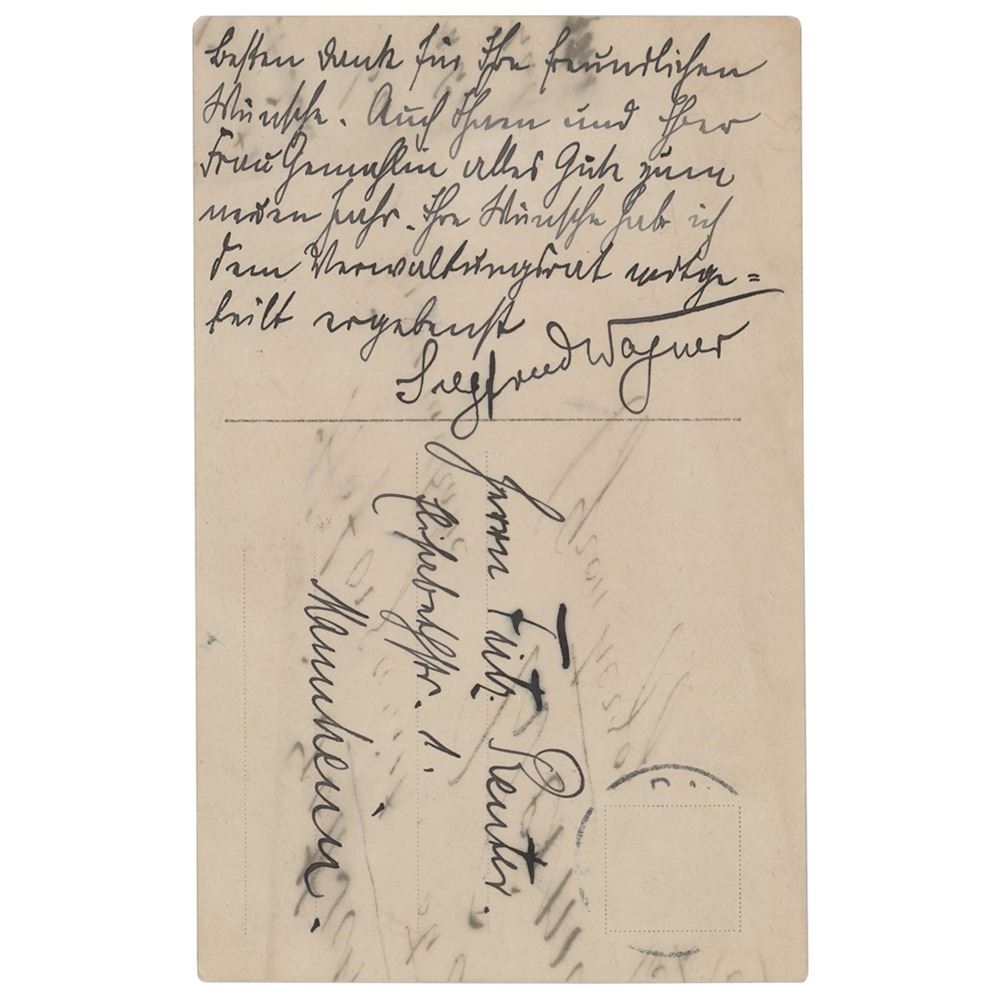 Besten Dank für Ihre freundlichen
Wünsche. Auch Ihnen und Ihrer
Frau Gemahlin alles Gute zum
neuen Jahr. Ihre Wünsche hab ich
dem Verwaltungsrat mitge=
teilt ergebenst
Siegfried Wagner
Herrn Fritz Reuter.
Elisabethstr. 1.
Mannheim.